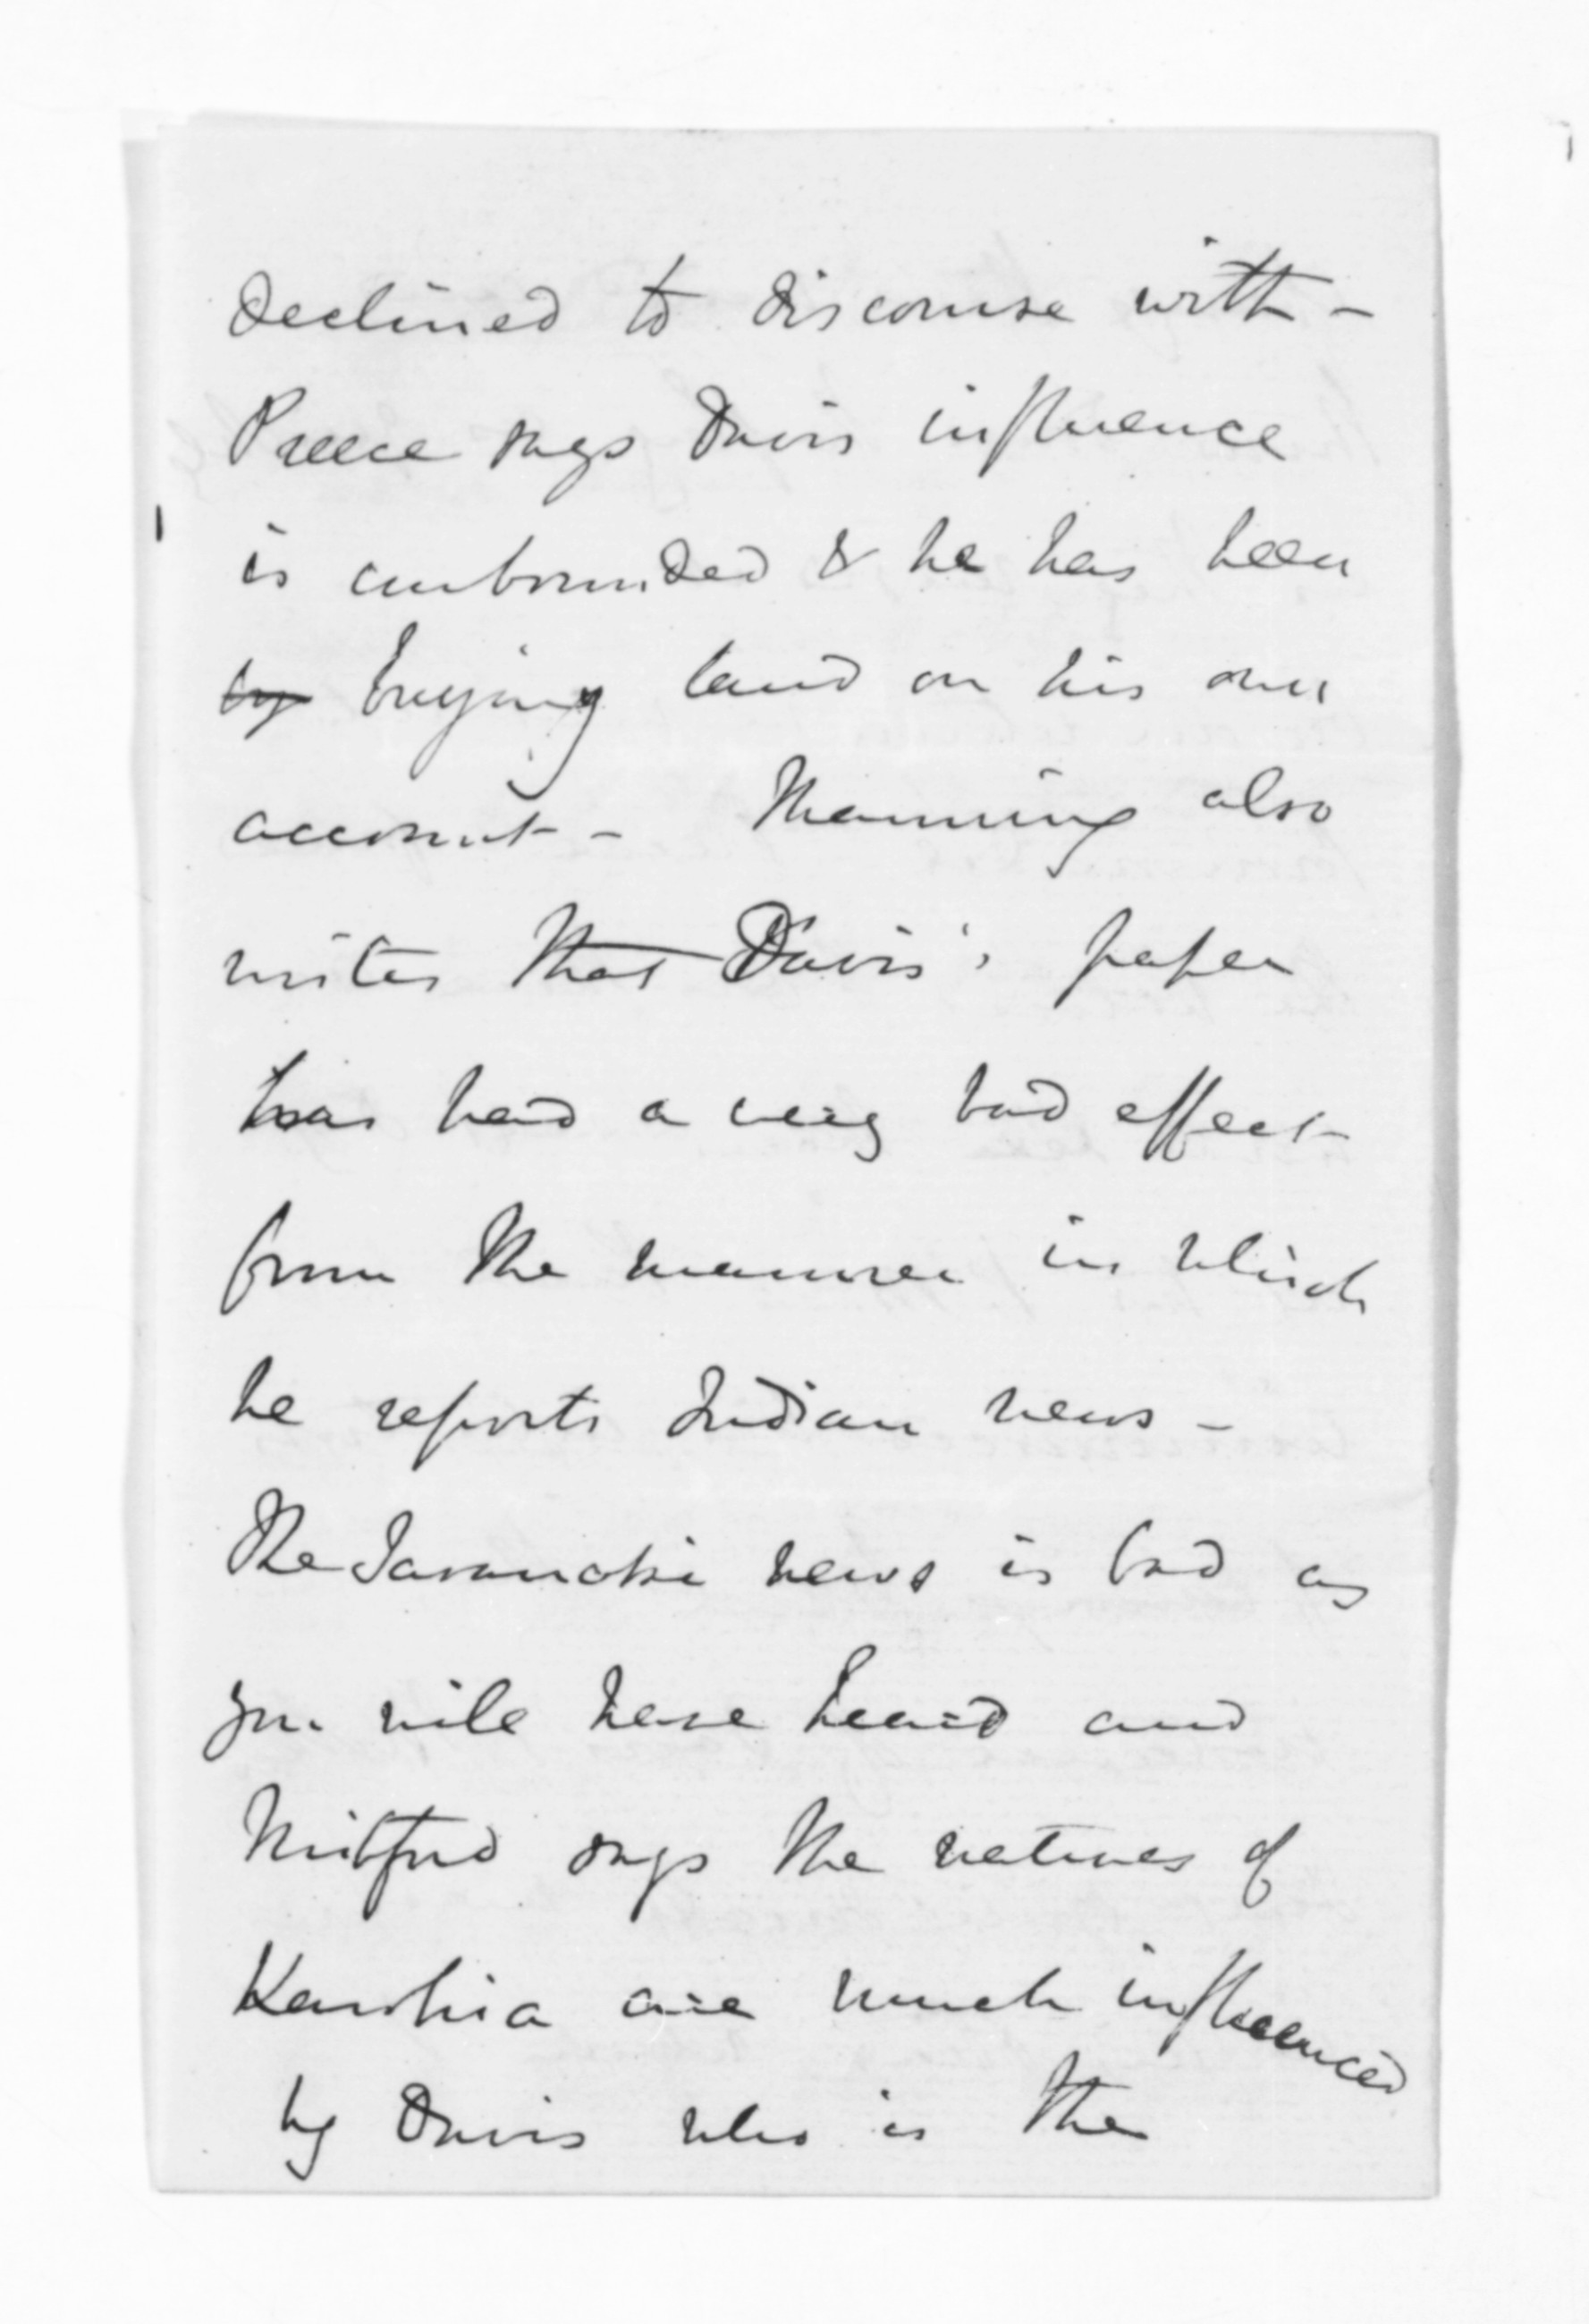 declined to discourse with -
Preece says Davis influence
is unbounded & he has been
by buying land on his own
account - Manning also
writes that Davis's paper
has had a very bad effect
from the manner in which
he reports Indian news -
The Taranaki news is bad as
you will have heard and
Mitford says the natives of
Kawhia are much influenced
by Davis who is the